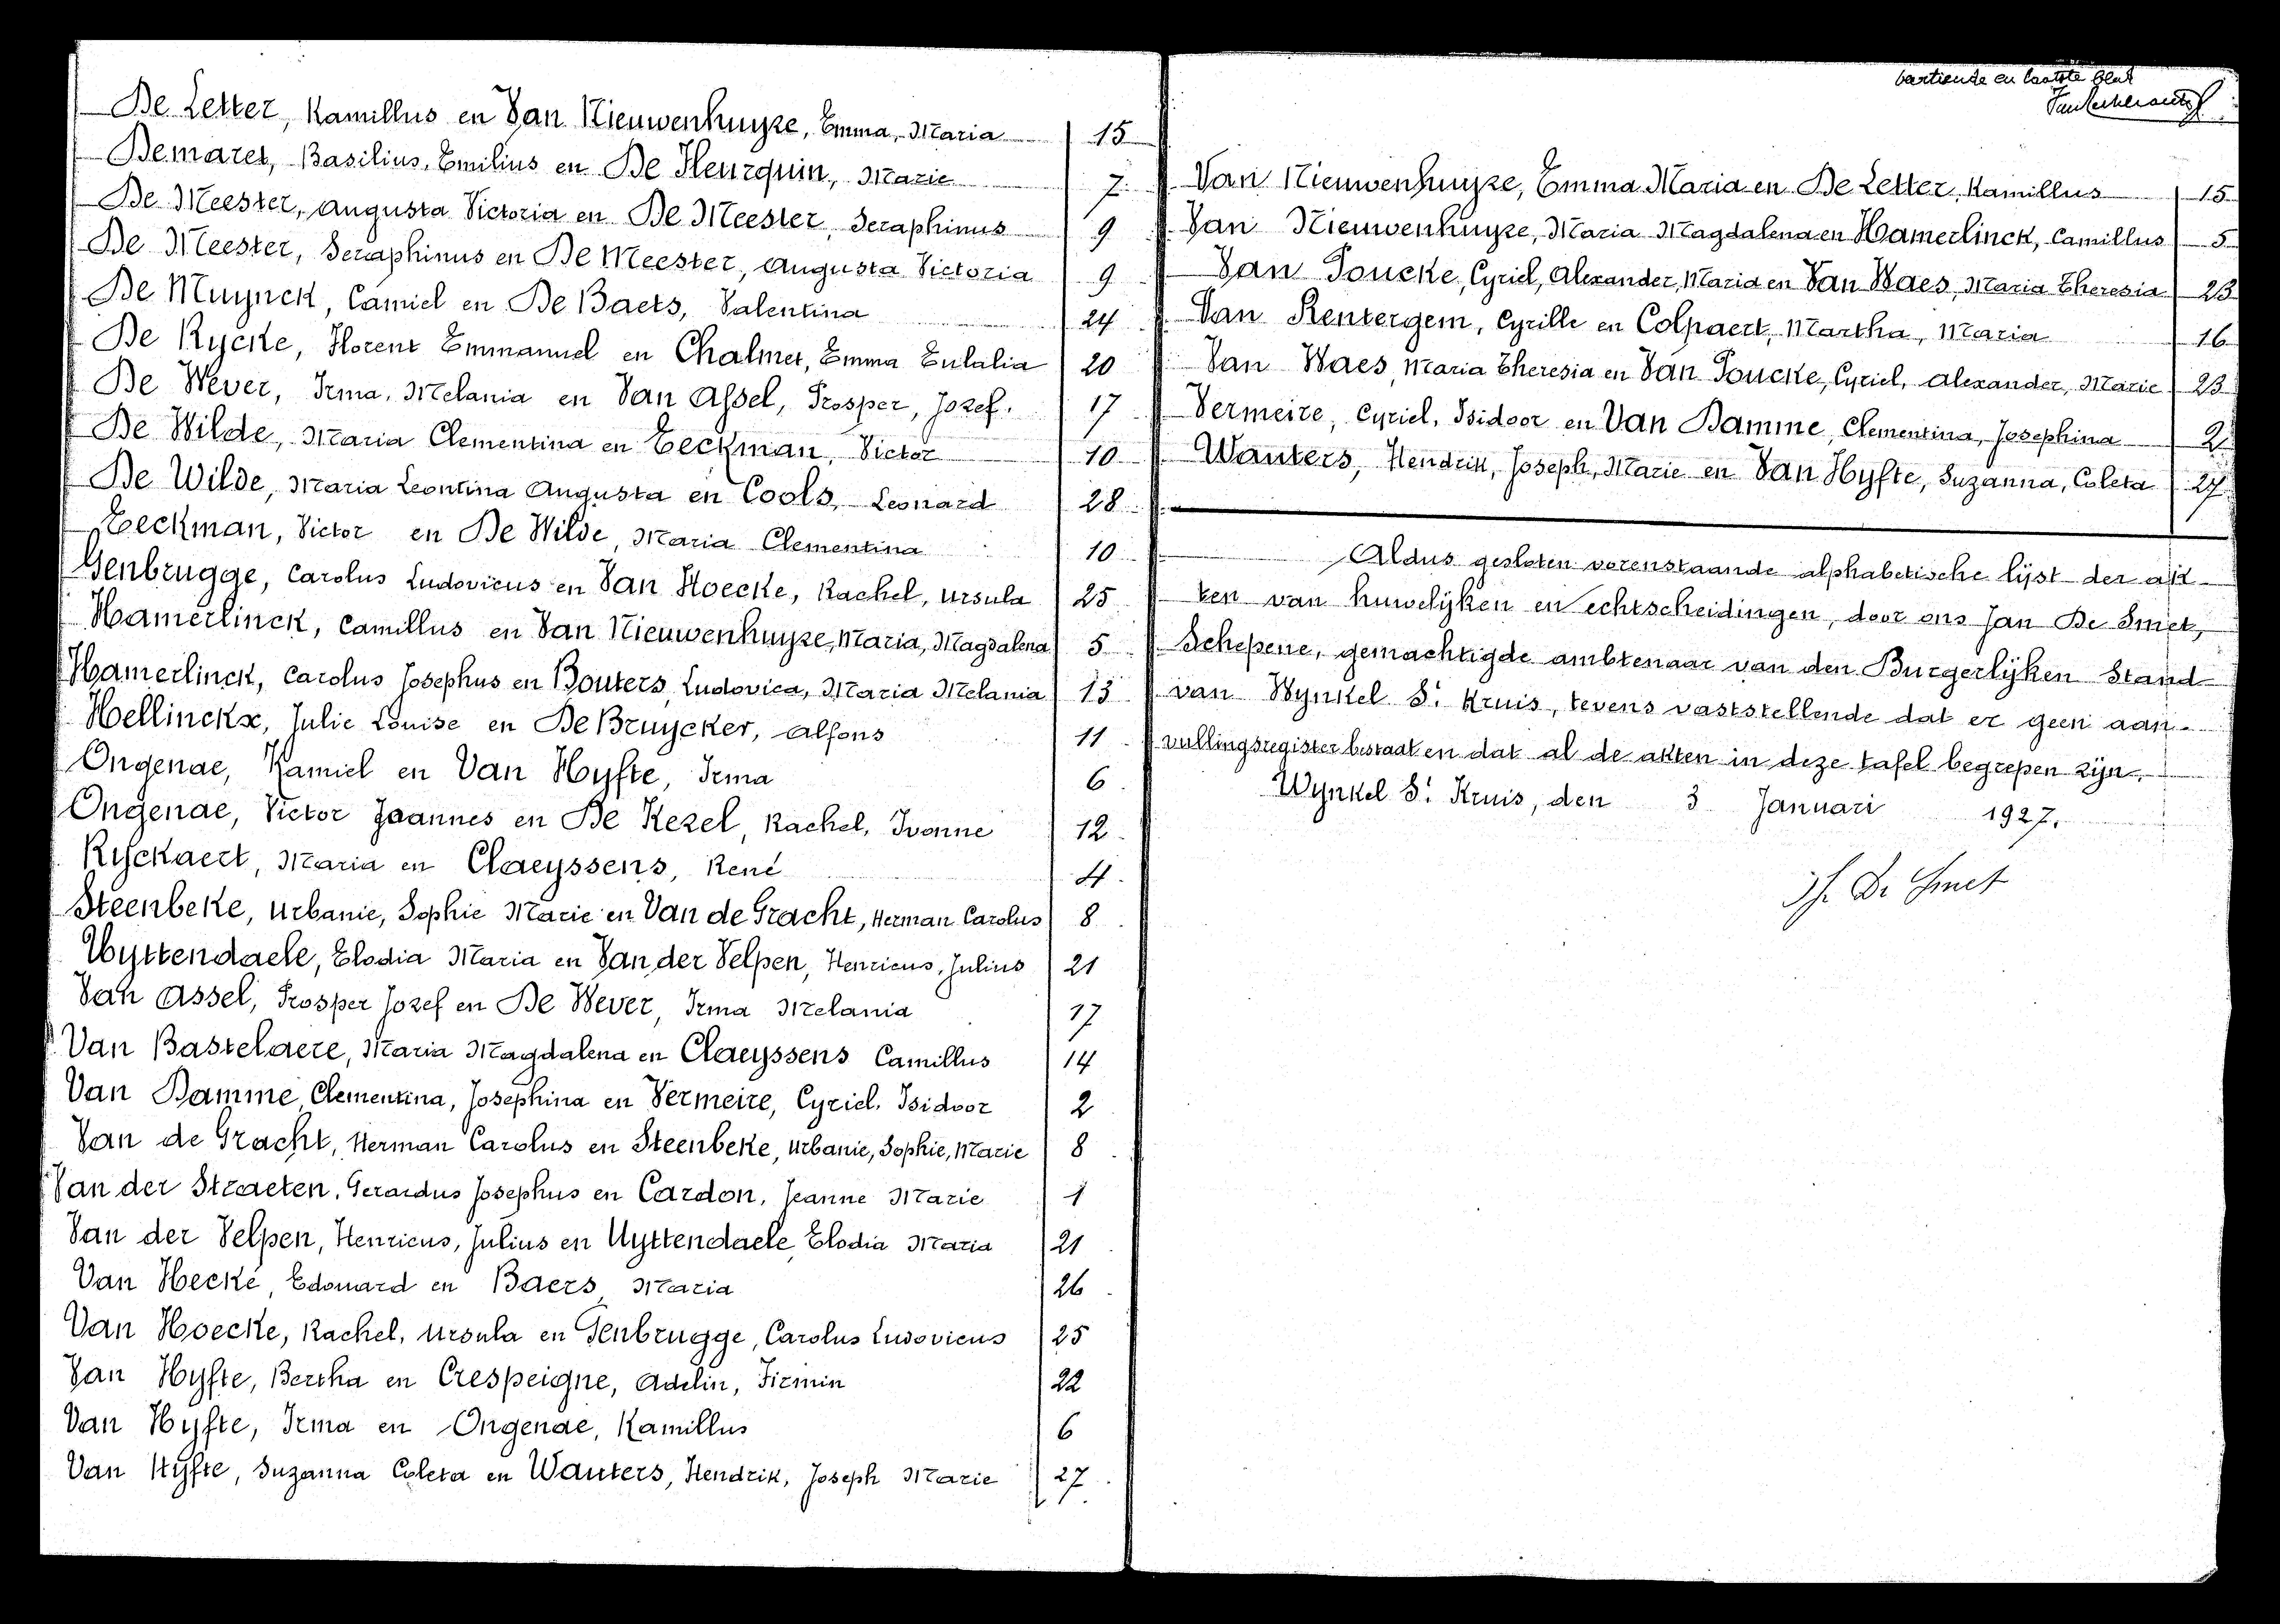 De Letter, Kamillus en Van Nieuwenhuyze, Emma, Maria 15
Demaret, Basilius, Emilius en De Fleurquin, Marie 7
De Meester, Augusta Victoria en De Meester, Seraphinus 9
De Meester, Seraphinus en De Meester, Augusta Victoria 9
De Muynck, Camiel en De Baets, Valentina 24
De Rycke, Florent Emmanuel en Chalmet, Emma Eulalia 20
De Wever, Irma, Melania en Van Assel, Prosper, Jozef. 17
De Wilde, Maria Clementina en Eeckman, Victor 10
De Wilde, Maria Leontina Augusta en Cools, Leonard 28
Eeckman, Victor en De Wilde, Maria Clementina 10
Genbrugge, Carolus Ludovicus en Van Hoecke, Rachel, Ursula 25
Hamerlinck, Camillus en Van Nieuwenhuyze, Maria, Magdalena 5
Hamerlinck, Carolus Josephus en Bouters, Ludovica, Maria Melania 13
Hellinckx, Julie Louise en De Bruycker, Alfons 11
Ongenae, Kamiel en Van Hyfte, Irma 6
Ongenae, Victor Joannes en De Kezel, Rachel, Ivonne 12
Ryckaert, Maria en Claeyssens, René 4
Steenbeke, Urbanie, Sophie Marie en Van de Gracht, Herman Carolus 8
Uyttendaele, Elodia Maria en Van der Velpen, Henricus, Julius 21
Van Assel, Prosper Jozef en De Wever, Irma Melania 17
Van Bastelaere, Maria Magdalena en Claeyssens Camillus 14
Van Damme, Clementina, Josephina en Vermeire, Cyriel, Isidoor 2
Van de Gracht, Herman Carolus en Steenbeke, Urbanie, Sophie, Marie 8
Van der Straeten, Gerardus Josephus en Cardon, Jeanne Marie 1
Van der Velpen, Henricus, Julius en Uyttendaele, Elodia Maria 21
Van Hecke, Edouard en Baers, Maria 26
Van Hoecke, Rachel, Ursula en Genbrugge, Carolus Ludovicus 25
Van Hyfte, Bertha en Crespeigne, Adelin, Firmin 22
Van Hyfte, Irma en Ongenae, Kamillus 6
Van Hyfte, Suzanna Coleta en Wauters, Hendrik, Joseph Marie 27
en laatste blad
Van Nieuwenhuyze, Emma Maria en De Letter, Kamillus 15
Van Nieuwenhuyze, Maria Magdalena en Hamerlinck, Camillus 5
Van Poucke, Cyriel, Alexander, Maria en Van Waes, Maria Theresia 23
Van Rentergem, Cyrille en Colpaert, Martha, Maria 16
Van Waes, Maria Theresia en Van Poucke, Cyriel, Alexander, Marie 23
Vermeire, Cyriel, Isidoor en Van Damme, Clementina, Josephina 2
Wauters, Hendrik, Joseph, Marie en Van Hyfte, Suzanna, Coleta 27
Aldus gesloten vorenstaande alphabetische lijst der ak-
ten van huwelijken en echtscheidingen, door ons Jan De Smet,
Schepene, gemachtigde ambtenaar van den Burgerlijken Stand
van Wynkel St Kruis, tevens vaststellende dat er geen aan-
vullingsregister bestaat en dat al de akten in deze tafel begrepen zijn.
Wynkel St Kruis, den 3 Januari 1927.
De Smet